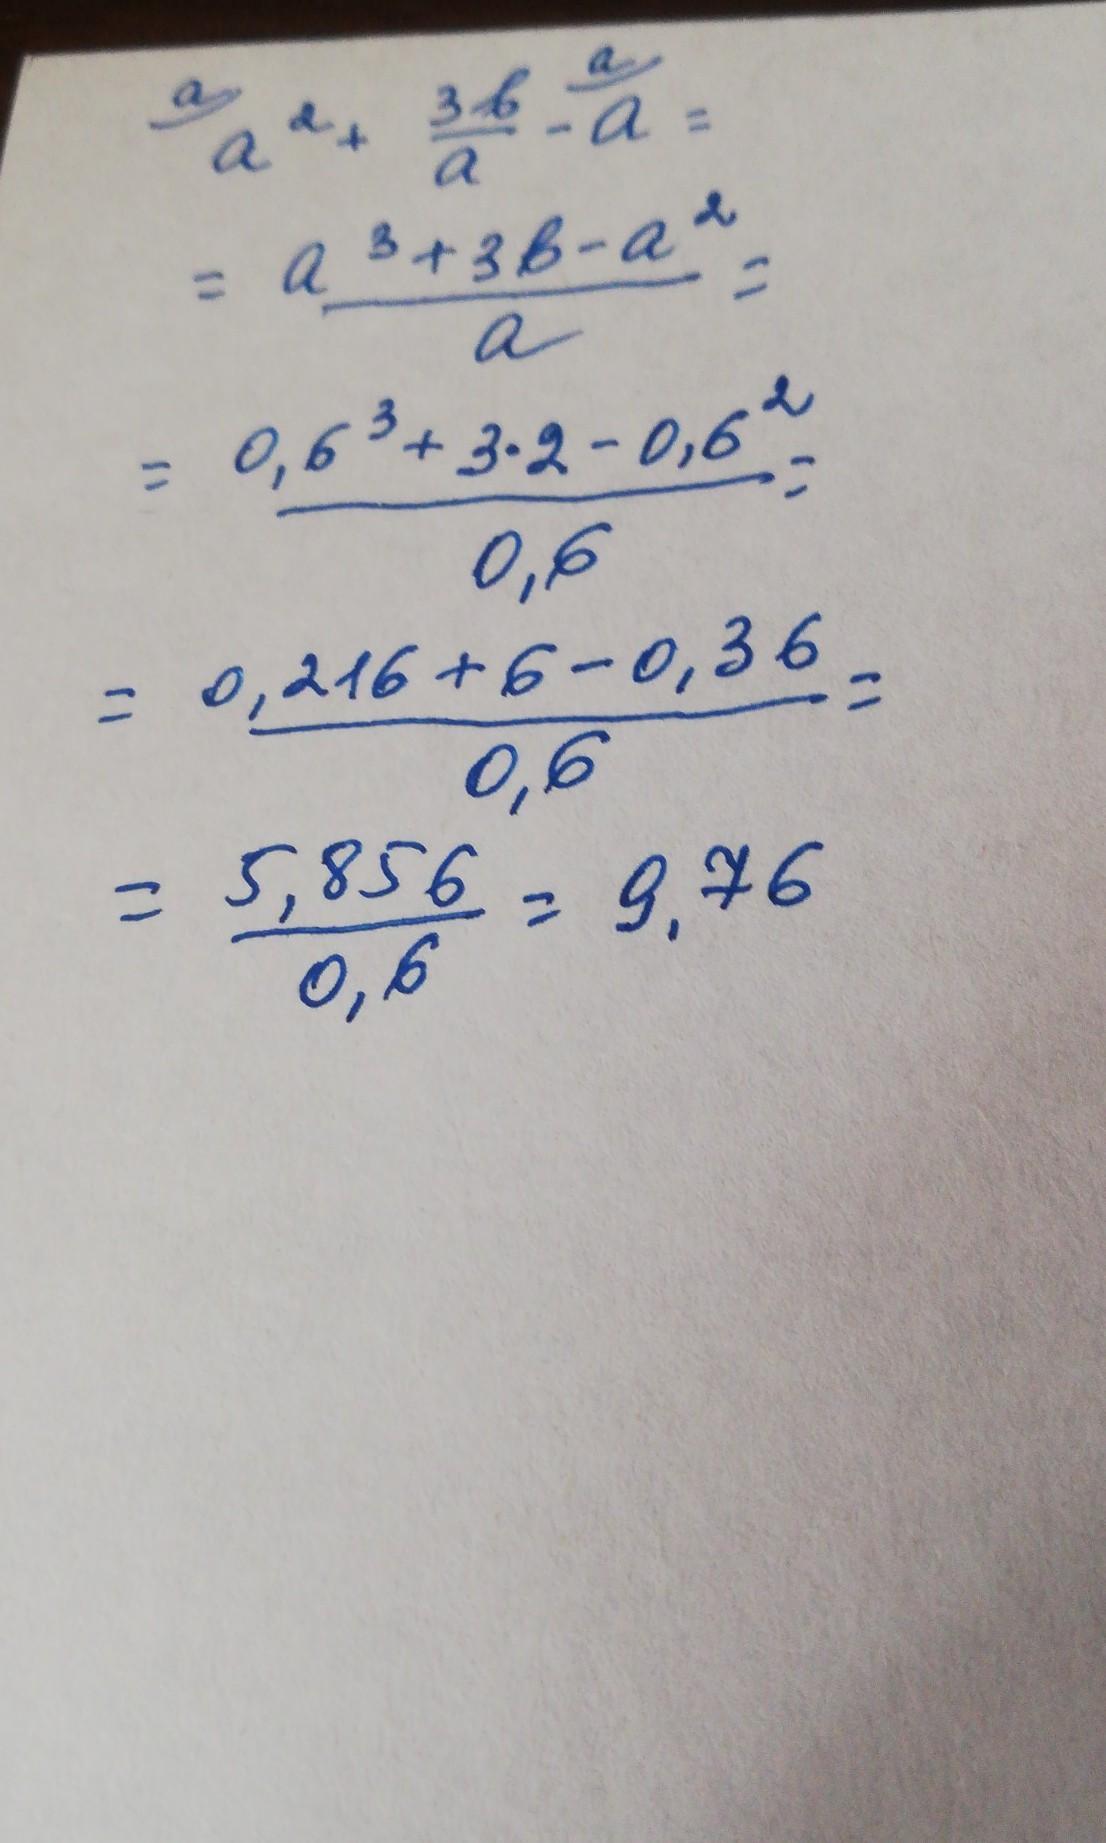 a/ a² + 3b/a - a/ a =
= a³ + 3b - a² / a =
= 0,6³ + 3·2 - 0,6² / 0,6 =
= 0,216 + 6 - 0,36 / 0,6 =
= 5,856 / 0,6 = 9,76